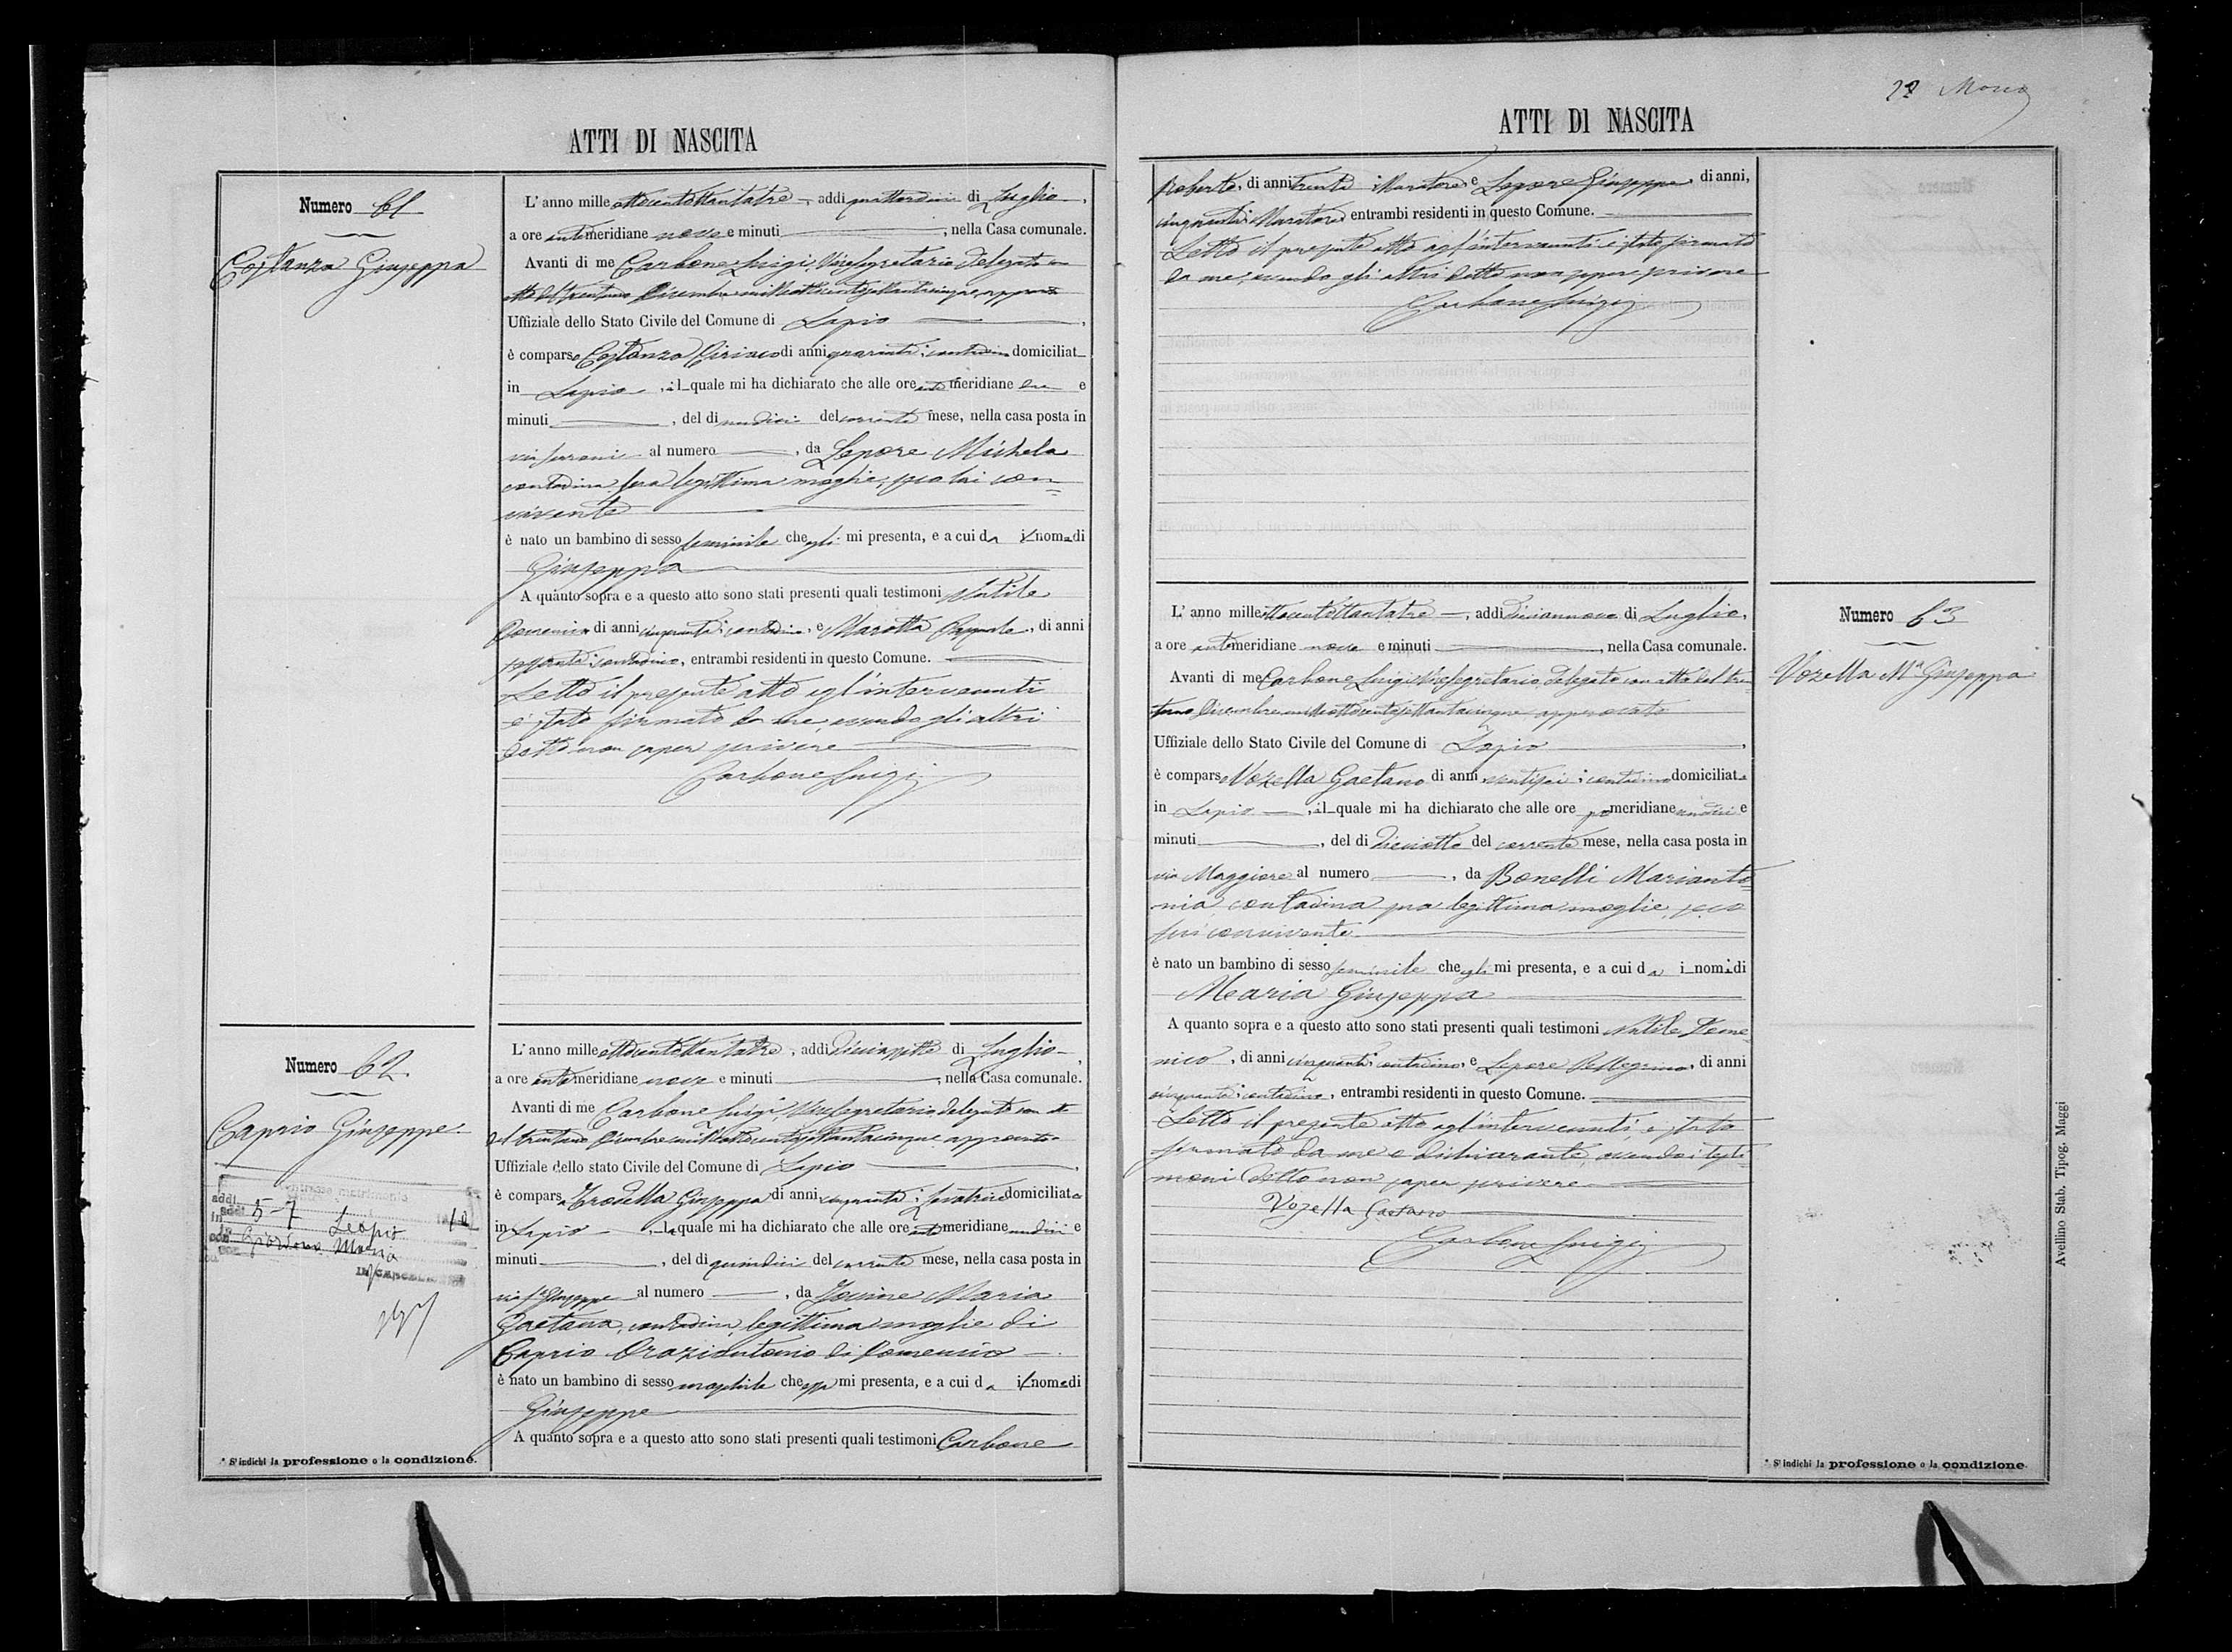 ATTI DI NASCITA
Numero 61
Costanza Giuseppa
L' anno mille ottocentottantatre, addi quattordici di Luglio,
a ore antimeridiane nove e minuti, nella Casa comunale.
Avanti di me Carbone Luigi, Vicesegretario delegato con
atto del trentuno Dicembre milleottocentosettantacinque, approvato
Uffiziale dello Stato Civile del Comune di Lapio,
è comparso Costanza Ciriaco di anni quaranta; contadino domiciliat
in Lapio, il quale mi ha dichiarato che alle ore antimeridiane due e
minuti, del di undici del corrente mese, nella casa posta in
via al numero, da Lepore Michela
contadina sua legittima moglie, seco lui con=
vivente
è nato un bambino di sesso feminile che egli mi presenta, e a cui da il nome di
Giuseppa
A quanto sopra e a questo atto sono stati presenti quali testimoni Natile
Domenico di anni cinquanta; contadino, e Marotta Pasquale, di anni
sessanta; contadino, entrambi residenti in questo Comune.
Letto il presente atto agl'intervenuti
è stato firmato da me, avendo gli altri
detto non saper scrivere
Carbone Luigi
Numero 62.
Caprio Giuseppe.
addi 5-7
in Leapio
con Giordano Maria
IN CANCELLIERE
L' anno mille ottocentottantatre, addi diciassette di Luglio,
a ore antimeridiane nove e minuti, nella Casa comunale.
Avanti di me Carbone Luigi, Vicesegretario delegato con atto
del trentuno Dicembre milleottocentosettantacinque approvato
Uffiziale dello stato Civile del Comune di Lapio,
è comparsa Trodella Giuseppa di anni cinquanta; levatrice domiciliata
in Lapio, la quale mi ha dichiarato che alle ore antimeridiane undici e
minuti, del di quindici del corrente mese, nella casa posta in
via S. Giuseppe al numero, da Jovine Maria
Gaetana, contadina, legittima moglie di
Caprio Oraziantonio di Domenico
è nato un bambino di sesso maschile che essa mi presenta, e a cui da il nome di
Giuseppe
A quanto sopra e a questo atto sono stati presenti quali testimoni Carbone
* S'indichi la professione o la condizione.
ATTI DI NASCITA
Roberto, di anni trenta; Muratore, e Lepore Giuseppe di anni,
cinquanta; Muratore entrambi residenti in questo Comune.
Letto il presente atto agl'intervenuti è stato firmato
da me, avendo gli altri detto non saper scrivere
Carbone Luigi
Numero 63
Vozella Mª Giuseppa
L' anno mille ottocentottantatre, addi diciannove di Luglio,
a ore antimeridiane nove e minuti, nella Casa comunale.
Avanti di me Carbone Luigi Vicesegretario delegato con atto del tren
tuno Dicembre milleottocentosettantacinque approvato
Uffiziale dello Stato Civile del Comune di Lapio,
è comparso Vozella Gaetano di anni ventisei; contadino domiciliato
in Lapio, il quale mi ha dichiarato che alle ore pomeridiane undici e
minuti, del di diciotto del corrente mese, nella casa posta in
via Maggiore al numero, da Bonelli Marianto=
nia contadina sua legittima moglie, seco
lui convivente
è nato un bambino di sesso feminile che egli mi presenta, e a cui da i nomi di
Maria Giuseppa
A quanto sopra e a questo atto sono stati presenti quali testimoni Natile Dome
nico, di anni cinquanta; contadino, e Lepore Pellegrino, di anni
cinquanta; contadino, entrambi residenti in questo Comune.
Letto il presente atto agl'intervenuti, è stato
firmato da me e dichiarante, avendo i testi=
moni detto non saper scrivere
Vozella Gaetano
Carbone Luigi
* S'indichi la professione o la condizione.
Avellino Stab. Tipog. Maggi